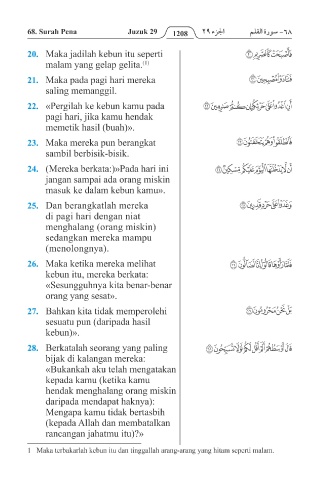 68. Surah Pena Juzuk 29 1208 الجزء ٢٩ ٦٨- سورة القلم
20. Maka jadilah kebun itu seperti
malam yang gelap gelita.[1]
فَأَصْبَحَتْ كَٱلصَّرِيمِ ۝٢٠
21. Maka pada pagi hari mereka
saling memanggil.
فَتَنَادَوْا۟ مُصْبِحِينَ ۝٢١
22. «Pergilah ke kebun kamu pada
pagi hari, jika kamu hendak
memetik hasil (buah)».
أَنِ ٱغْدُوا۟ عَلَىٰ حَرْثِكُمْ إِن كُنتُمْ صَـٰرِمِينَ ۝٢٢
23. Maka mereka pun berangkat
sambil berbisik-bisik.
فَٱنطَلَقُوا۟ وَهُمْ يَتَخَـٰفَتُونَ ۝٢٣
24. (Mereka berkata:)»Pada hari ini
jangan sampai ada orang miskin
masuk ke dalam kebun kamu».
أَن لَّا يَدْخُلَنَّهَا ٱلْيَوْمَ عَلَيْكُم مِّسْكِينٌ ۝٢٤
25. Dan berangkatlah mereka
di pagi hari dengan niat
menghalang (orang miskin)
sedangkan mereka mampu
(menolongnya).
وَغَدَوْا۟ عَلَىٰ حَرْدٍ قَـٰدِرِينَ ۝٢٥
26. Maka ketika mereka melihat
kebun itu, mereka berkata:
«Sesungguhnya kita benar-benar
orang yang sesat».
فَلَمَّا رَأَوْهَا قَالُوٓا۟ إِنَّا لَضَآلُّونَ ۝٢٦
27. Bahkan kita tidak memperolehi
sesuatu pun (daripada hasil
kebun)».
بَلْ نَحْنُ مَحْرُومُونَ ۝٢٧
28. Berkatalah seorang yang paling
bijak di kalangan mereka:
«Bukankah aku telah mengatakan
kepada kamu (ketika kamu
hendak menghalang orang miskin
daripada mendapat haknya):
Mengapa kamu tidak bertasbih
(kepada Allah dan membatalkan
rancangan jahatmu itu)?»
قَالَ أَوْسَطُهُمْ أَلَمْ أَقُل لَّكُمْ لَوْلَا تُسَبِّحُونَ ۝٢٨
1 Maka terbakarlah kebun itu dan tinggallah arang-arang yang hitam seperti malam.